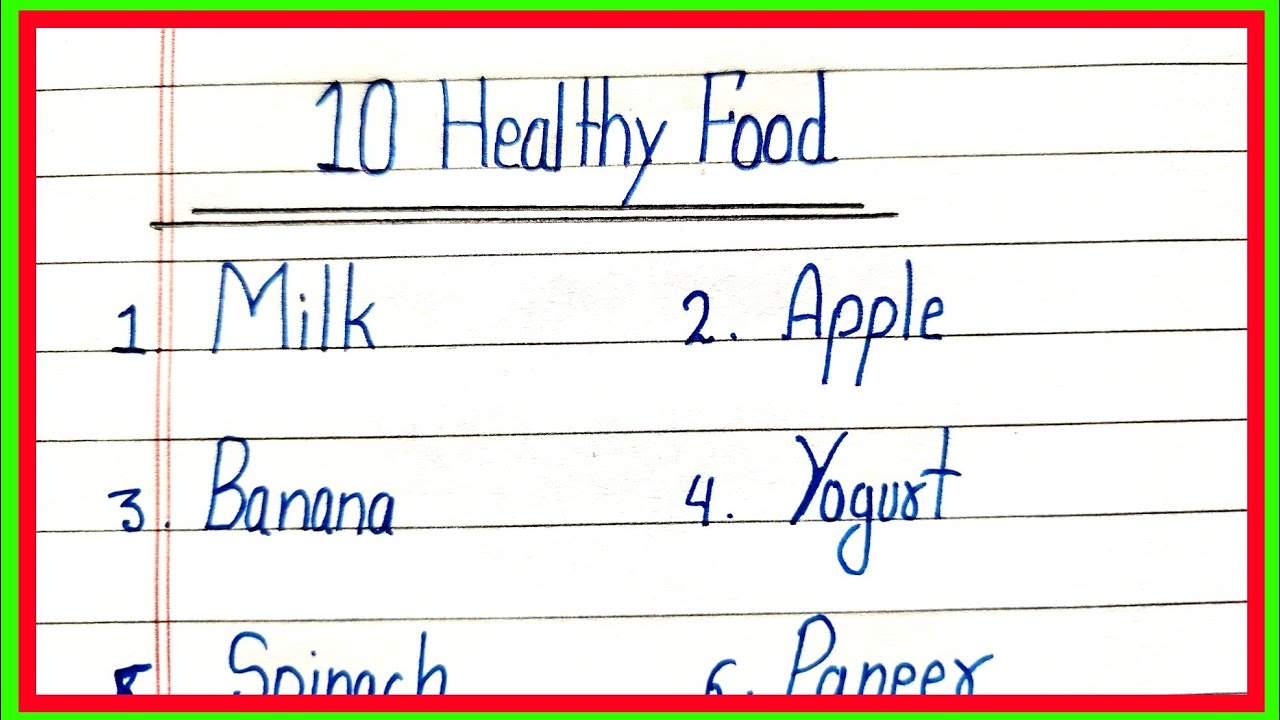 10 Healthy Food
1. Milk 2. Apple
3. Banana 4. Yogurt
5. Spinach 6. Paneer